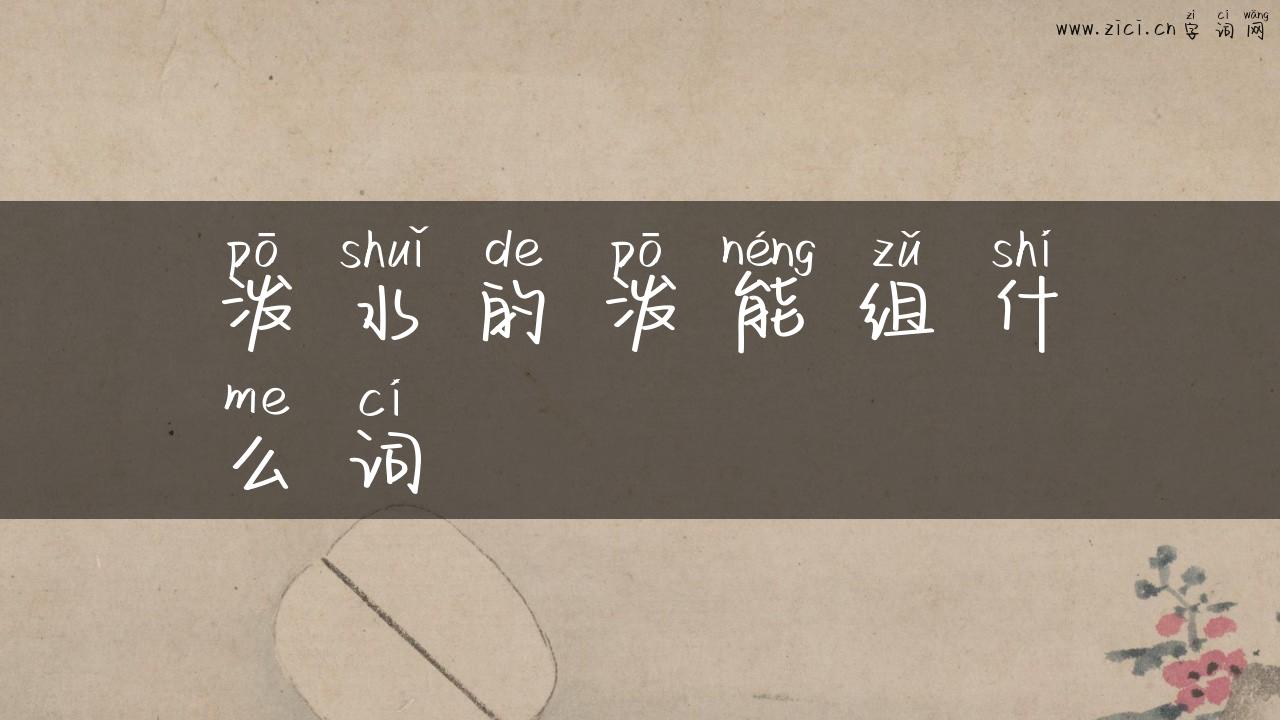 zì cí wǎng
www.zici.cn 字词网
pō shuǐ de pō néng zǔ shí
泼水的泼能组什
me cí
么词